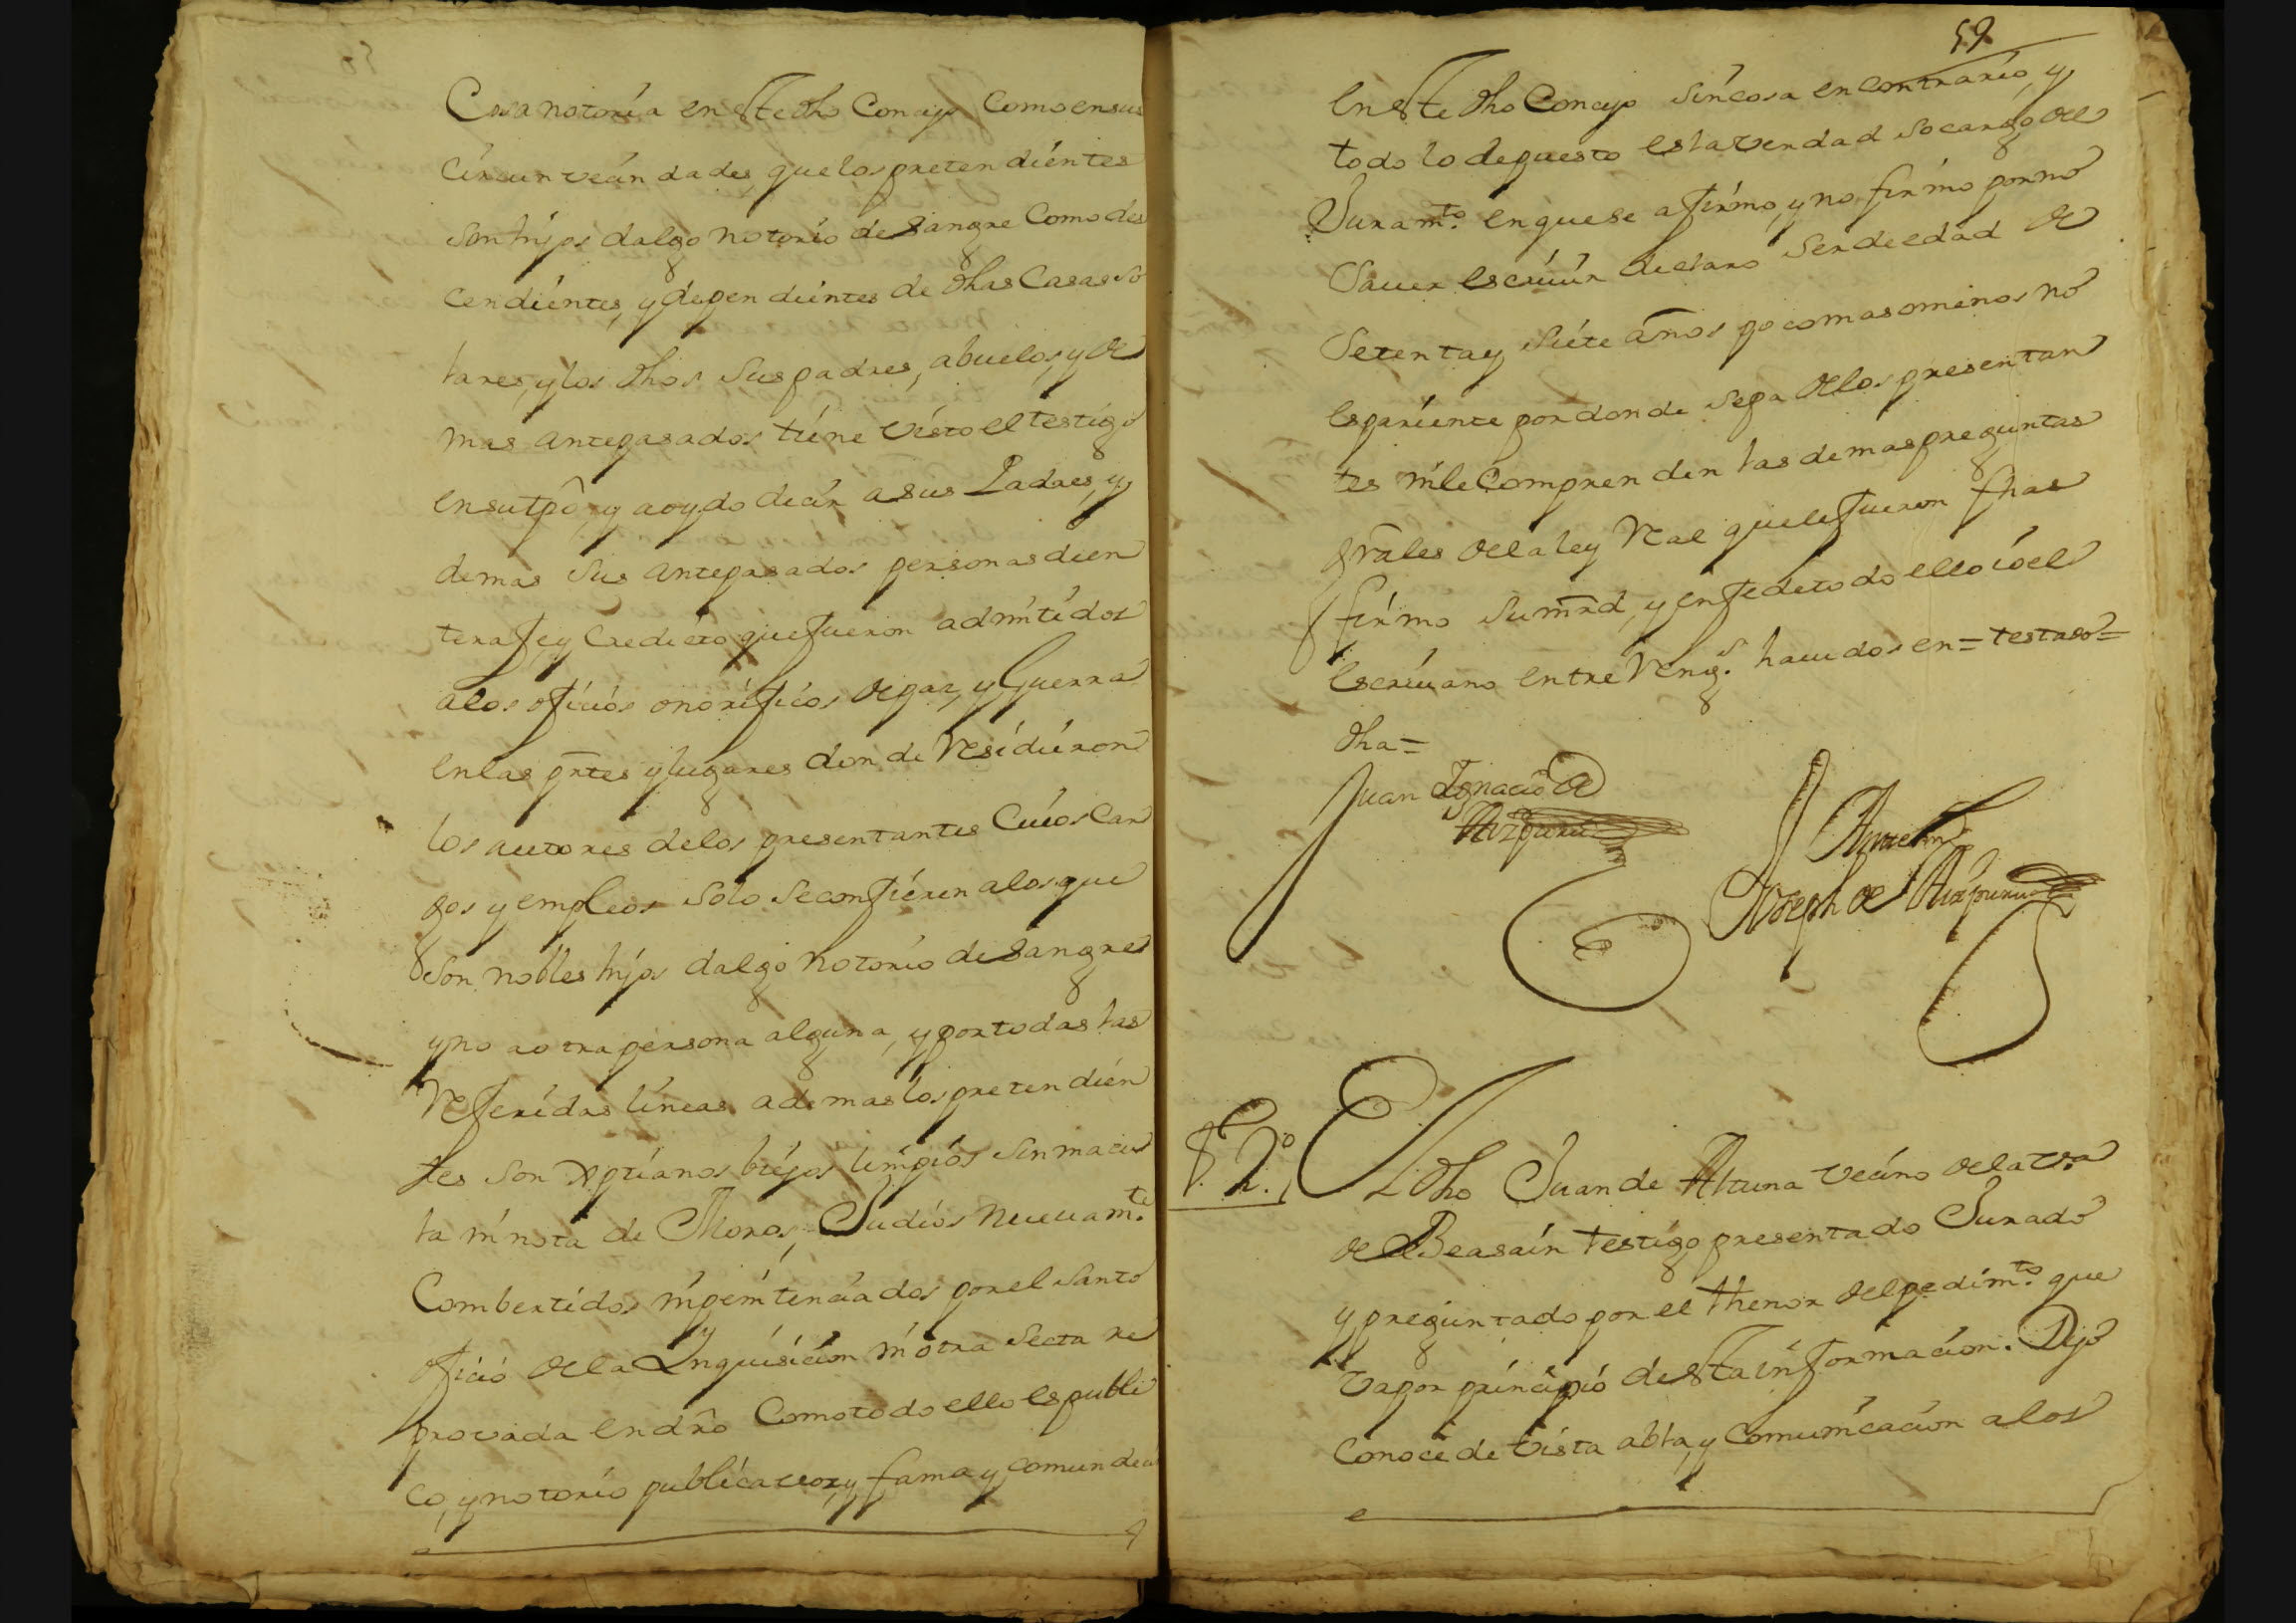 Cosa notoria en este dho Concejo Como en sus
circunveçindades, que los pretendientes
son hijos dalgo notorio de sangre Como des
cendientes, y dependientes de dhas Casas so
lares, y los dhos sus padres, abuelos, y de
mas antepasados tiene visto el testigo
en su tpô, y a oydo decir a sus Padres, y
demas sus antepasados personas de en
tera fe, y Credicto que fueron admitidos
a los oficios onorificos de paz, y Guerra
en las prtes y lugares donde Residieron
los autores de los presentantes Cuios Car
gos y empleos solo se confieren a los que
son nobles hijos dalgo notorio de sangre
y no a otra persona alguna, y por todas las
Referidas lineas ademas los pretendien
tes son Xptianos biejos limpios sin macu
la ni nota de Moros, Judios nueuamte
Combertidos ni penitenciados por el santo
oficio de la Inquisicion ni otra secta re
provada en dro Como todo ello es publi
co, y notorio publica voz, y fama y comun deci
59
en este dho Concejo sin cosa en contrario, y
todo lo depuesto es la verdad so cargo del
Juramto en que se afirmo, y no firmo por no
saver escriuir declaro ser de edad de
setenta y siete años poco mas o menos no
es pariente por donde sepa de los presentan
tes ni le Comprenden las demas preguntas
grâles de la ley Real que le fueron fhas
firmo su mrd, y en fe de todo ello io el
escriuano entre Reng.s hauidos en = testado =
dha =
Juan Ignacio de
Aizpuru
Ante mi
Joseph de Aizpuru
t. 2.º El dho Juan de Altuna veçino de la va
de Beasain testigo presentado Jurado
y preguntado por el thenor del pedimto que
va por principio desta informacion. Dijo
conoce de vista abla, y comunicacion a los